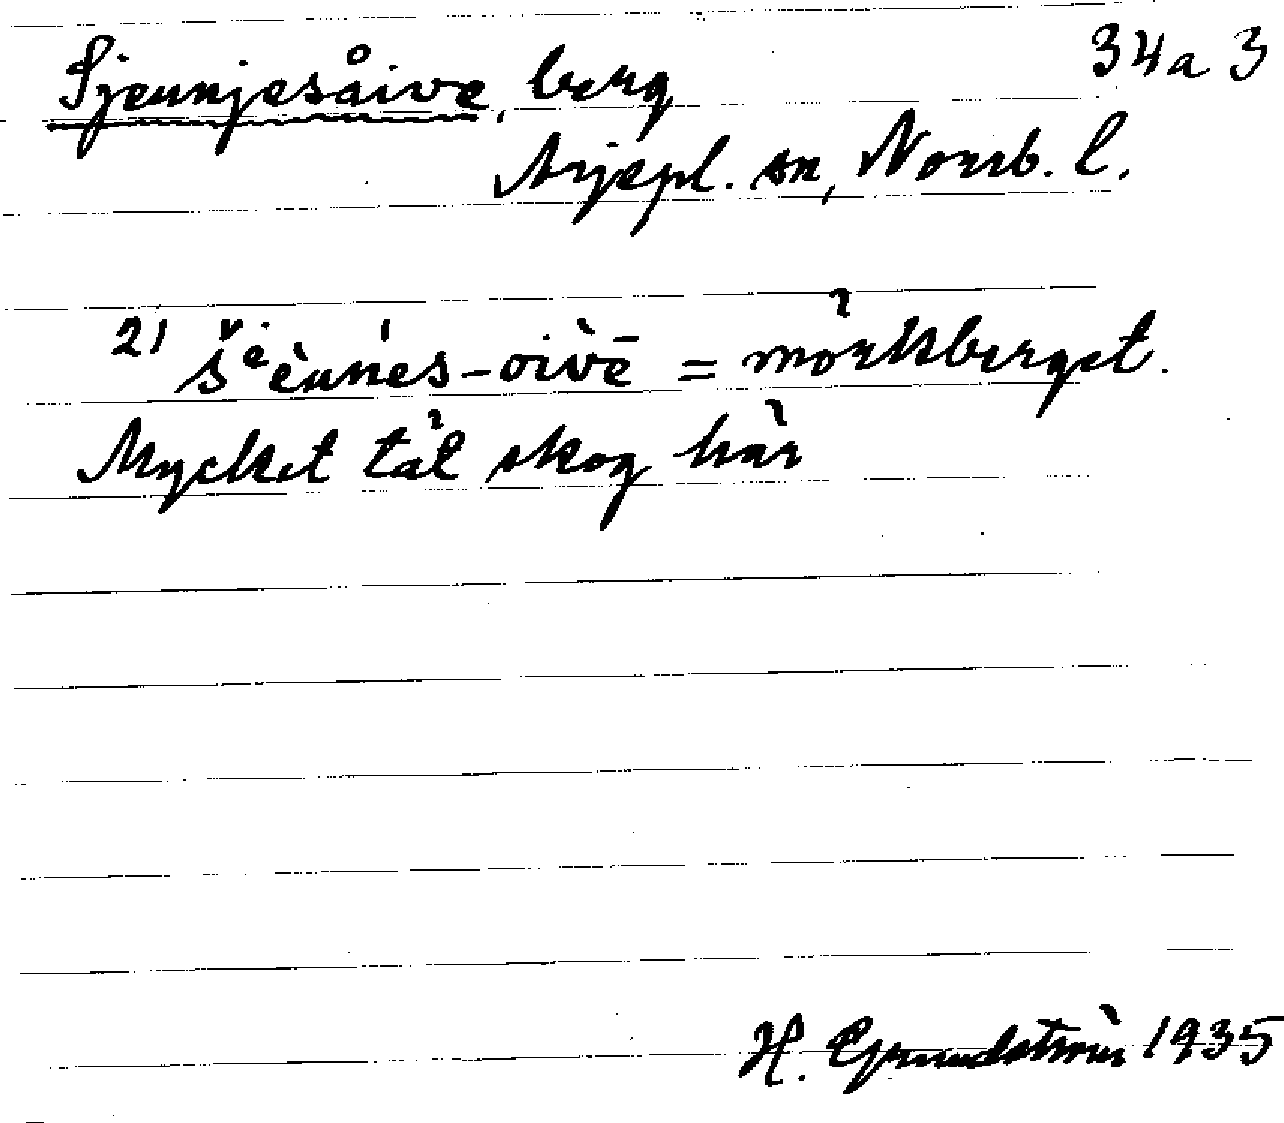 Sjeunjesåive, berg 34a 3
Arjepl. sn, Norrb. l.
2) šᵉèunes-oivē = mörkberget.
Mycket tät skog här
H. Grundström 1935